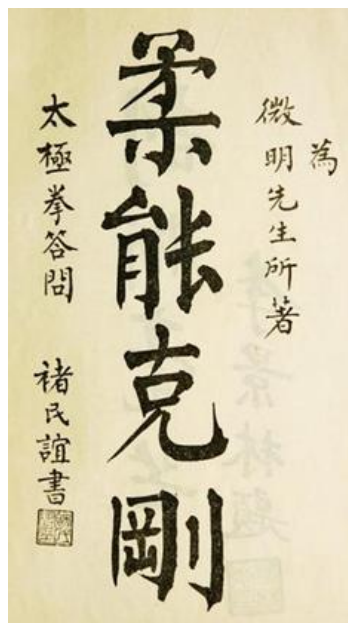 為
微明先生所著
柔能克剛
太極拳答問
褚民誼書